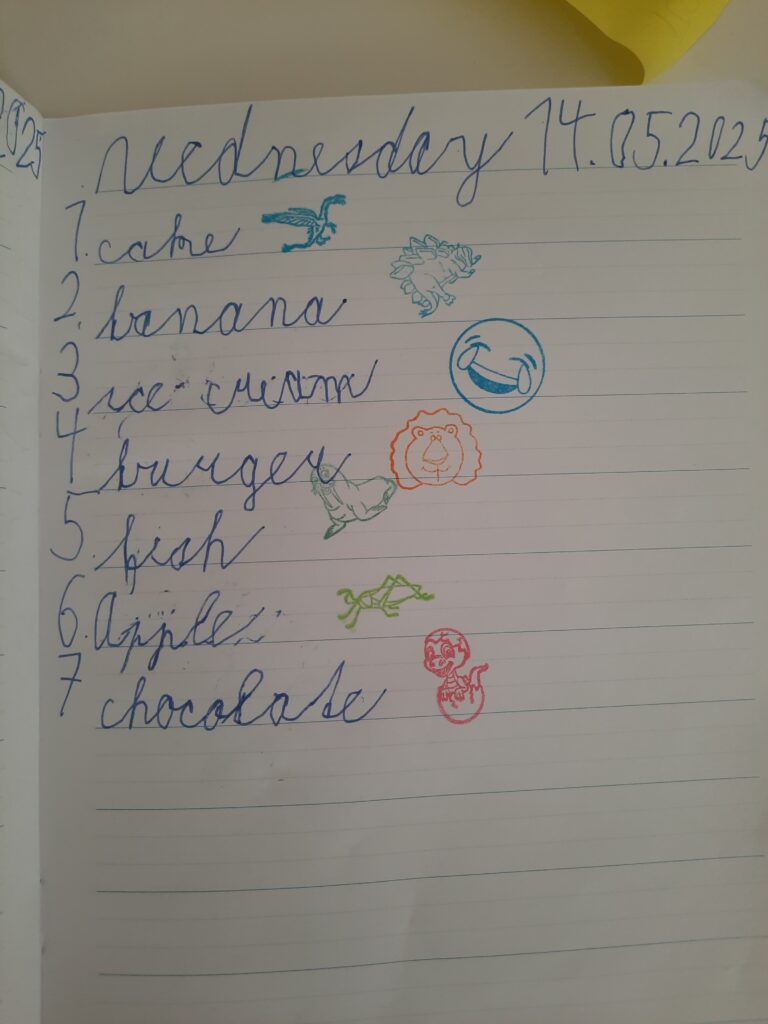 2025
Wednesday 14.05.2025
1. cake
2. banana
3 ice-cream
4 burger
5. fish
6. Apple
7 chocolate